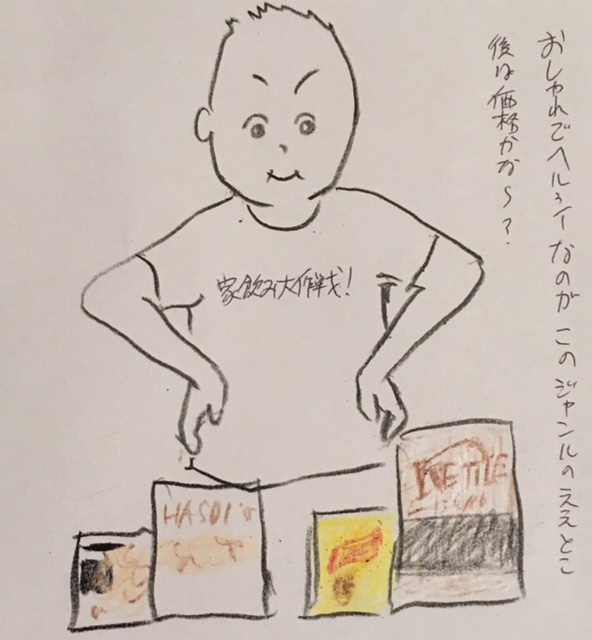 おしゃれでヘルシーなのがこのジャンルのええとこ
後は価格かな〜?
家飲み大作戦!
KETTLE